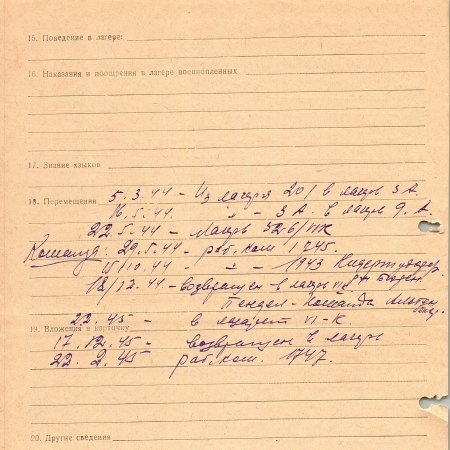 15. Поведение в лагере:
16. Наказания и поощрения в лагере военнопленных
17. Знание языков
18. Перемещения 5.3.44 – Из лагеря 201 в лагерь 3 А.
16.5.44. – " – " – 3 А. в лагерь 9. А.
22.5.44 – Лагерь 326/VIК
Команда: 29.5.44 – раб. ком 1745.
15/10.44 – " – " – 1943
18/12.44 – возвращен в лагерь
команда
22. .45 – в лазарет VI-К
19. Вложения в карточку
17.12.45 – возвращен в лагерь
22.2.45 раб. ком. 1747.
20. Другие сведения